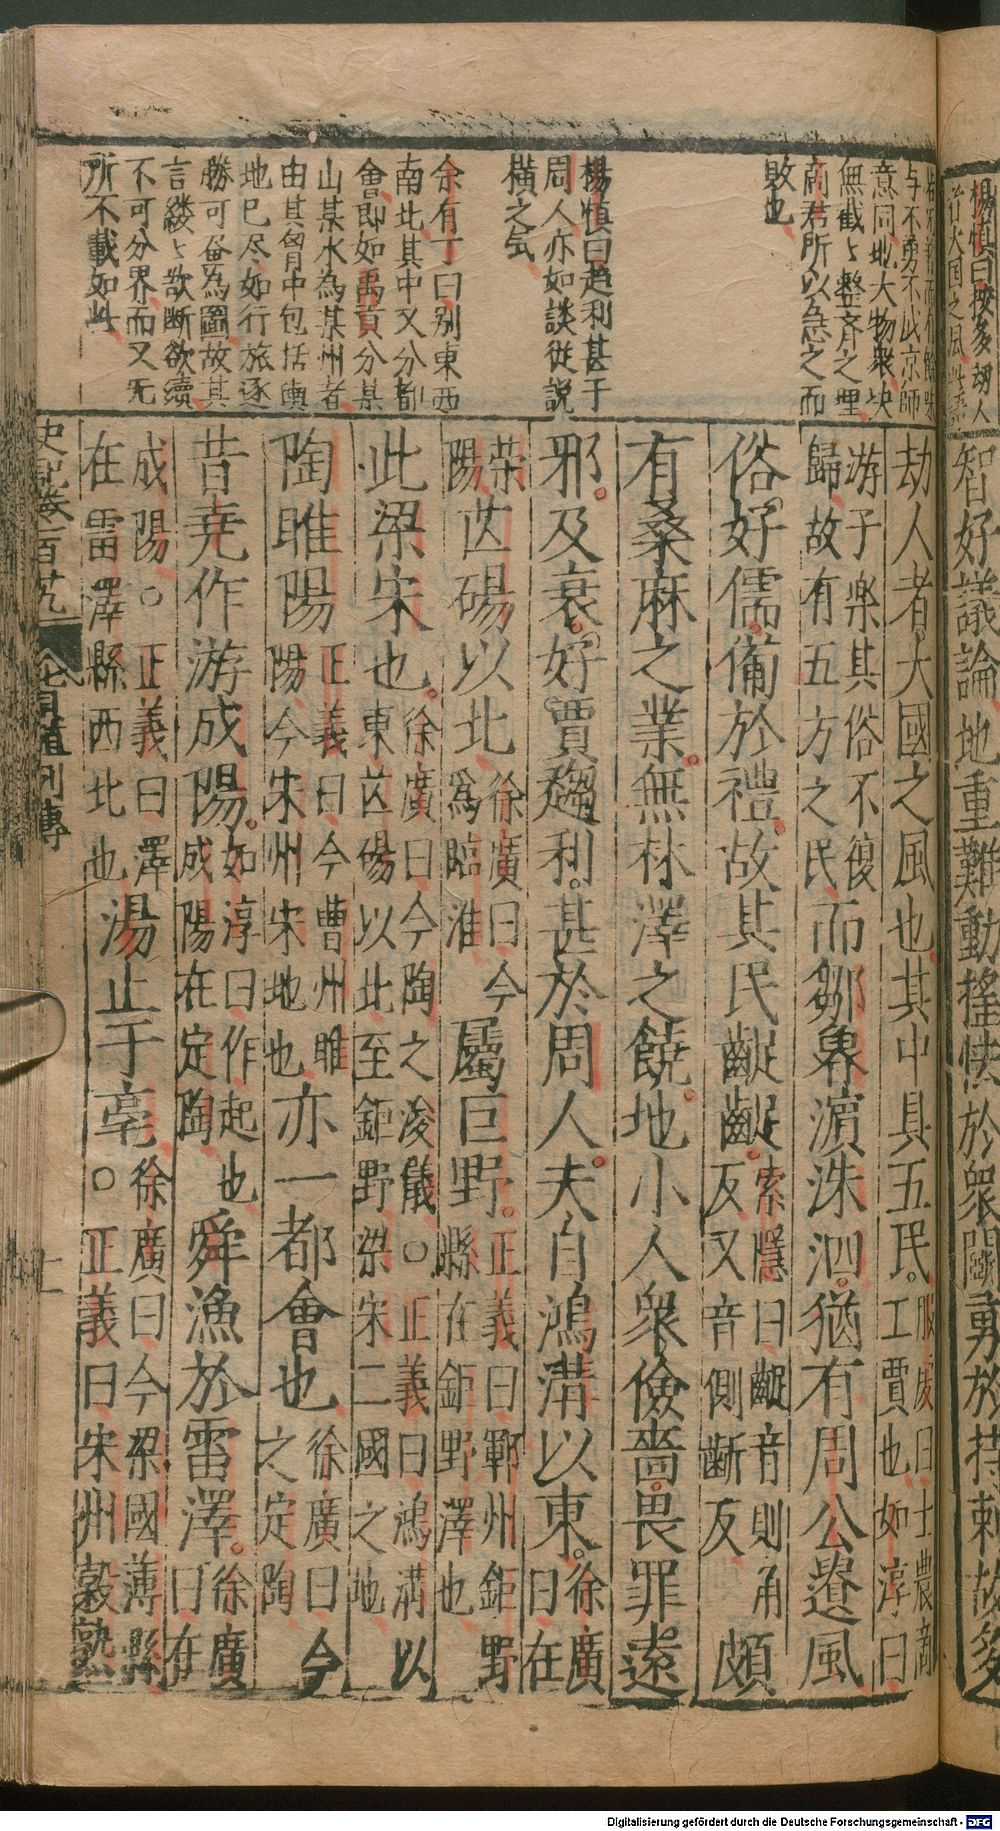 智好議論地重難動搖怯於衆鬬勇於持刺故多
劫人者大國之風也其中具五民服虔曰士農商
工賈也如淳曰
游子樂其俗不復
歸故有五方之民而鄒魯濵洙泗猶有周公遺風
俗好儒備於禮故其民齪齪索隱曰齪音則角
反又音側斷反頗
有桑麻之業無林澤之饒地小人衆儉嗇畏罪遠
邪及衰好賈趨利甚於周人夫自鴻溝以東徐廣
曰在
滎陽芒碭以北徐廣曰今
為臨淮屬巨野正義曰鄆州鉅野
縣在鉅野澤也
此梁宋也徐廣曰今陶之浚儀○正義曰鴻溝以
東芒碭以北至鉅野梁宋二國之地
陶睢陽正義曰今曹州睢
陽今宋州宋地也亦一都會也徐廣曰今
之定陶
昔堯作游成陽如淳曰作起也
成陽在定陶舜漁於雷澤徐廣
曰在
成陽○正義曰澤
在雷澤縣西北也湯止于亳徐廣曰今梁國薄縣
○正義曰宋州穀熟
与不勇不
意同地大物衆决
無截々整齊之理
商君所以急之而
敗也
楊慎曰趋利甚于
周人亦如談從説
橫之矣
余有丁曰别東西
南北其中又分都
會即如禹貢分某
山某水為某州者
由其胷中包括輿
地已尽如行旅逐
勝可畣為圖故其
言縷々欲断欲續
不可分界而又无
所不載如此
史記卷一百
貨殖列傳
十一
Digitalisierung gefördert durch die Deutsche Forschungsgemeinschaft - DFG